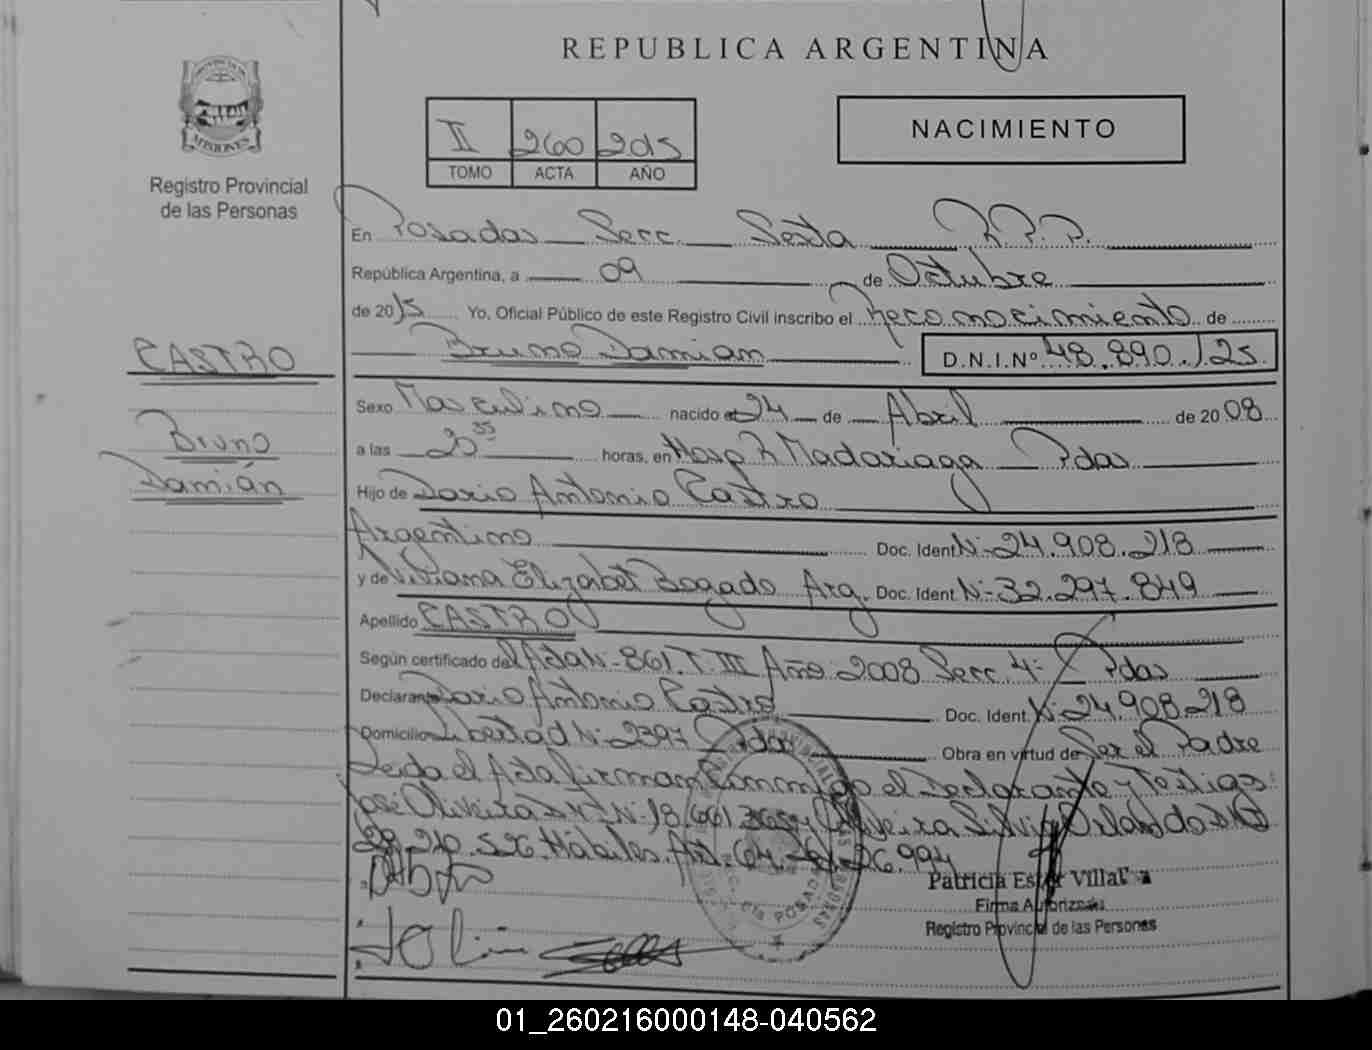 REPUBLICA ARGENTINA
PROVINCIA DE
MISIONES
Registro Provincial
de las Personas
II 260 2015
TOMO ACTA AÑO
NACIMIENTO
En Posadas Secc. Sexta R.P.P.
República Argentina, a 09 de Octubre
de 2015 Yo, Oficial Público de este Registro Civil inscribo el Reconocimiento de
Bruno Damian D.N.I.Nº 48.890.125
CASTRO
Bruno
Damián
Sexo Masculino nacido el 24 de Abril de 2008
a las 20 35 horas, en Hosp R Madariaga Pdas
Hijo de Dario Antonio Castro
Argentino Doc. Ident. Nº 24.908.218
y de Viviana Elizabet Bogado Arg. Doc. Ident. Nº 32.297.849
Apellido CASTRO
Según certificado del Acta Nº 861. T. III Año 2008 Secc. 4º Pdas
Declarante Dario Antonio Castro Doc. Ident. Nº 24.908.218
Domicilio Libertad Nº 2397 Pdas Obra en virtud de Ser el Padre
Leida el Acta firman conmigo el Declarante y Testigos:
José Oliveira DNI Nº 18.661. Oliveira Silvio Orlando DNI
Hábiles. Art. 64 26.994
Patricia Ester Villalva
Firma Autorizada
Registro Provincial de las Personas
POSADAS
01_260216000148-040562